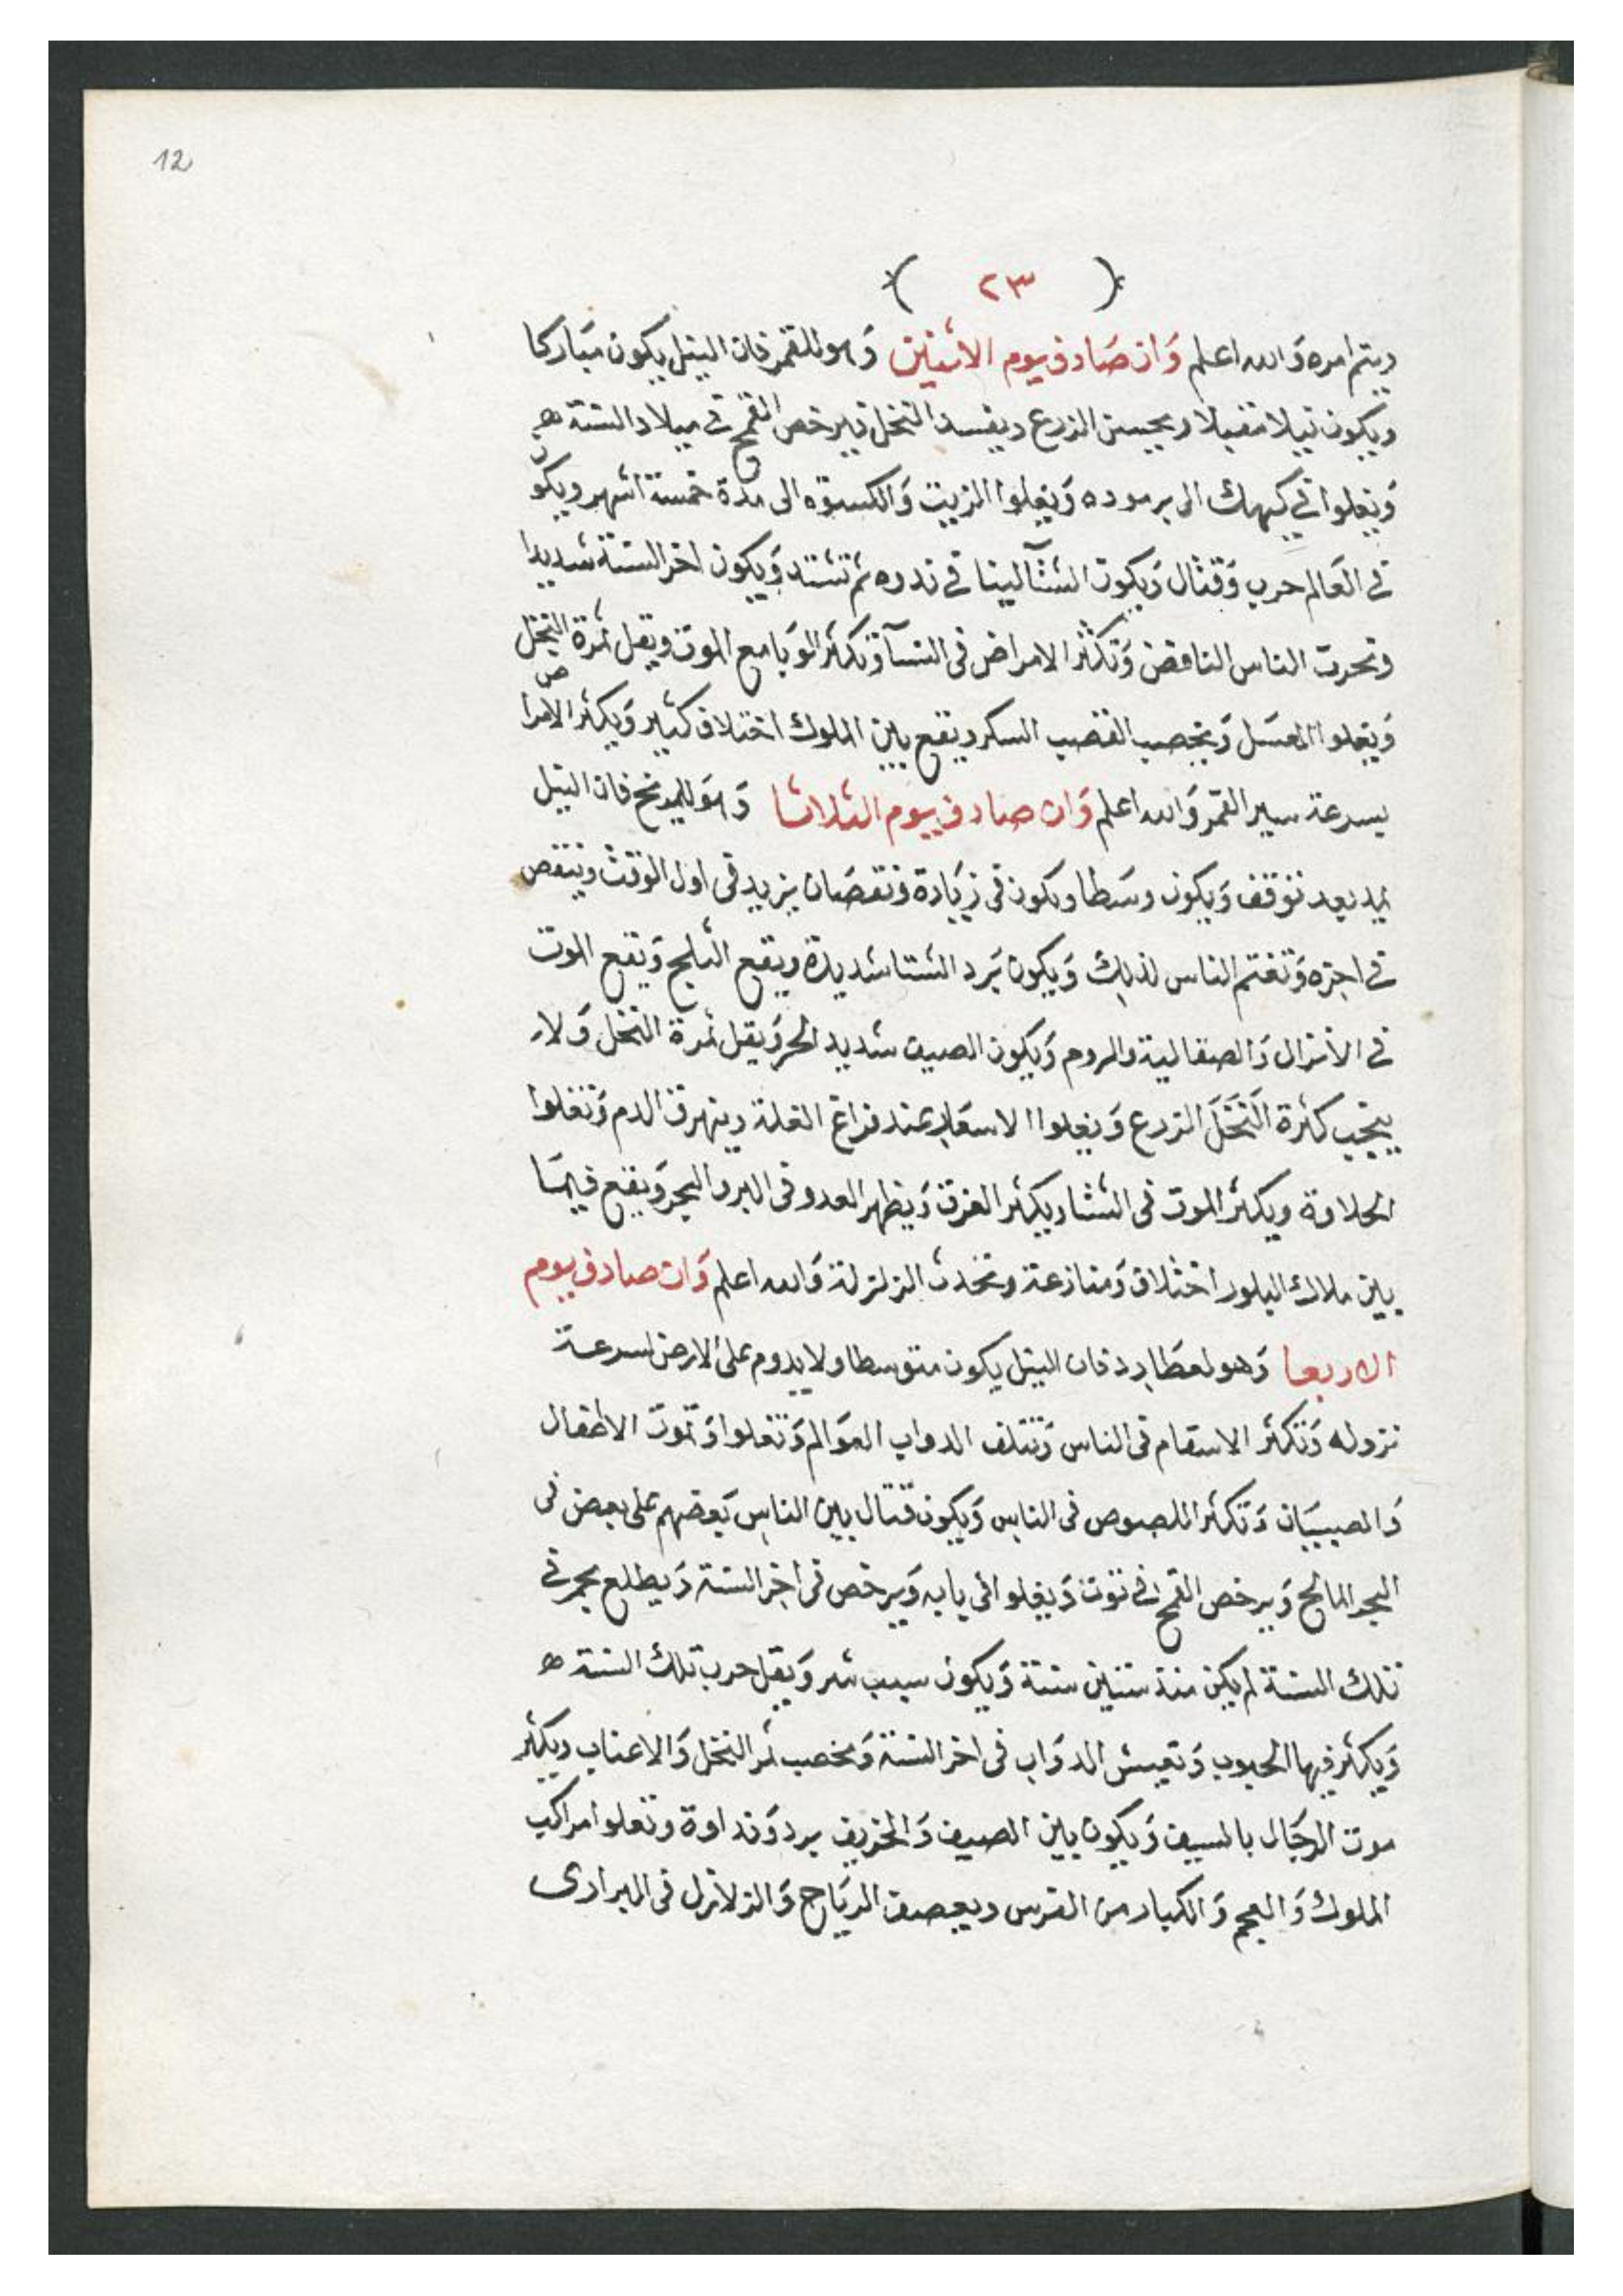 12
( ٢٣ )
ويتم امره وَالله اعلم وَان صَادف يوم الاثنين وَهو للقمر فان النيل يكون مبَاركا
ويكون نيلا مقبلا ويحسن الزرع ويفسد النخل ويرخص القمح فى ميلاد السنة ه
وَيغلوا فى كيهك الى برموده وَيغلوا الزيت وَالكسوه الى مدة خمسة اشهر ويكون
فى العَالم حرب وَقتال وَيكون الشتآ لينا فى ندره ثم تشتد وَيكون اخر السنة شديدا
وتحرت الناس النافض وَتكثر الامراض فى النسآ وَتكثر الوَبا مع الموت ويقل ثمرة النخل
وَيغلوا العسَل وَيخصب القصب السكر ويقع بين الملوك اختلاف كثير وَيكثر الامراض
بسرعة سير القمر وَالله اعلم وَان صادف يوم الثلاثا وَهوَ للمريخ فان النيل
يبد بعد توقف وَيكون وسَطا ويكون فى زيَادة ونقصَان يزيد فى اول الوقت وينقص
فى اخره وَتغتم الناس لذلِك وَيكون بَرد الشتا شديدة ويقع الثلج وَيقع الموت
فى الاتراك وَالصقالبة والروم وَيكون الصيف شديد الحر وَيقل ثمرة النخل وَلا
ينجب كثرة النَخَلَ الزرع وَيغلوا الاسعَار عند فراغ الغلة ويهرق الدم وَتغلوا
الحلاوة ويكثر الموت فى الشتا ويكثر الغرق وَيظهر العدو فى البر والبحر وَيقع فيهَا
بين ملاك البلود اختلاف وَمنازعة وتحدث الزلزلة وَالله اعلم وَان صادف يوم
الاربعا وَهو لعطَارد فان النيل يكون متوسطا ولا يدوم على الارض لسرعة
نزوله وَتكثر الاسقام فى الناس وَتتلف الدواب العوَالم وَتغلوا وَتموت الاطفال
وَالصبيَان وَتكثر اللصوص فى الناس وَيكون قتال بين الناس بَعضهم على بعض فى
البحر المالح وَيرخص القمح فى توت وَيغلوا فى بابه وَيرخص فى اخر السنة وَيطلع نجم فى
تلك السنة لم يكن منذ ستين سنة وَيكون سبب شر وَيقل حرب تلك السنة ه
وَيكثر فيها الحبوب وَتعيش الدوَاب فى اخر السنة وَيخصب ثمر النخل وَالاعناب ويكثر
موت الرجَال بالسيف وَيكون بين الصيف وَالخريف برد وَنداوة وتغلوا مراكب
الملوك وَالعجم وَالكبار من الفرس ويعصف الريَاح وَالزلازل فى البرارى